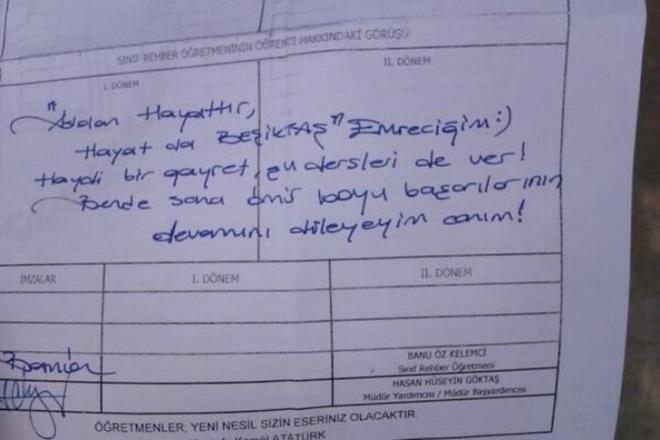 SINIF REHBER ÖĞRETMENİNİN ÖĞRENCİ HAKKINDAKİ GÖRÜŞÜ
I. DÖNEM II. DÖNEM
Hayattır,
Hayat da BEŞİKTAŞ" Emreciğim:)
Haydi bir gayret, şu dersleri de ver!
Bende sana ömür boyu başarılarının
devamını dileyeyim canım!
İMZALAR I. DÖNEM II. DÖNEM
BANU ÖZ KELEMCİ
Sınıf Rehber Öğretmeni
HASAN HÜSEYİN GÖKTAŞ
Müdür Yardımcısı / Müdür Başyardımcısı
ÖĞRETMENLER, YENİ NESİL SİZİN ESERİNİZ OLACAKTIR.
Kemal ATATÜRK